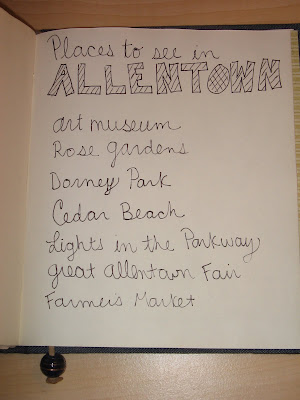 Places to see in
ALLENTOWN
art museum
Rose gardens
Dorney Park
Cedar Beach
Lights in the Parkway
great allentown Fair
Farmer's Market